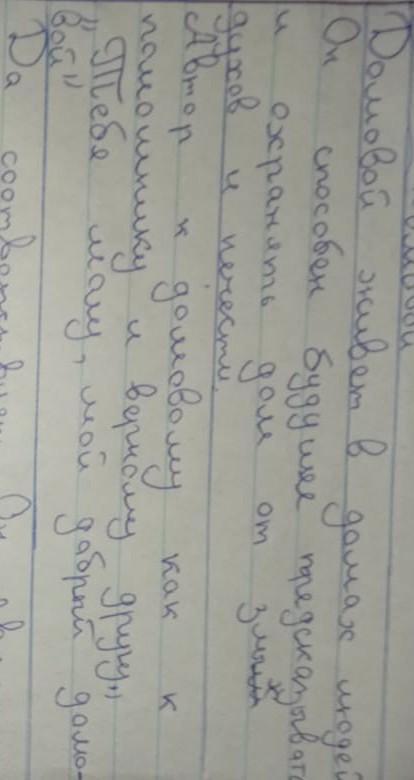 Домовой живет в домах людей
Он способен будущее предсказывать
и охранять дом от злых
духов и нечести.
Автор к домовому как к
помошнику и верному другу„
„Тебя малу, мой добрый домо-
вой„
Да соответствует. Он